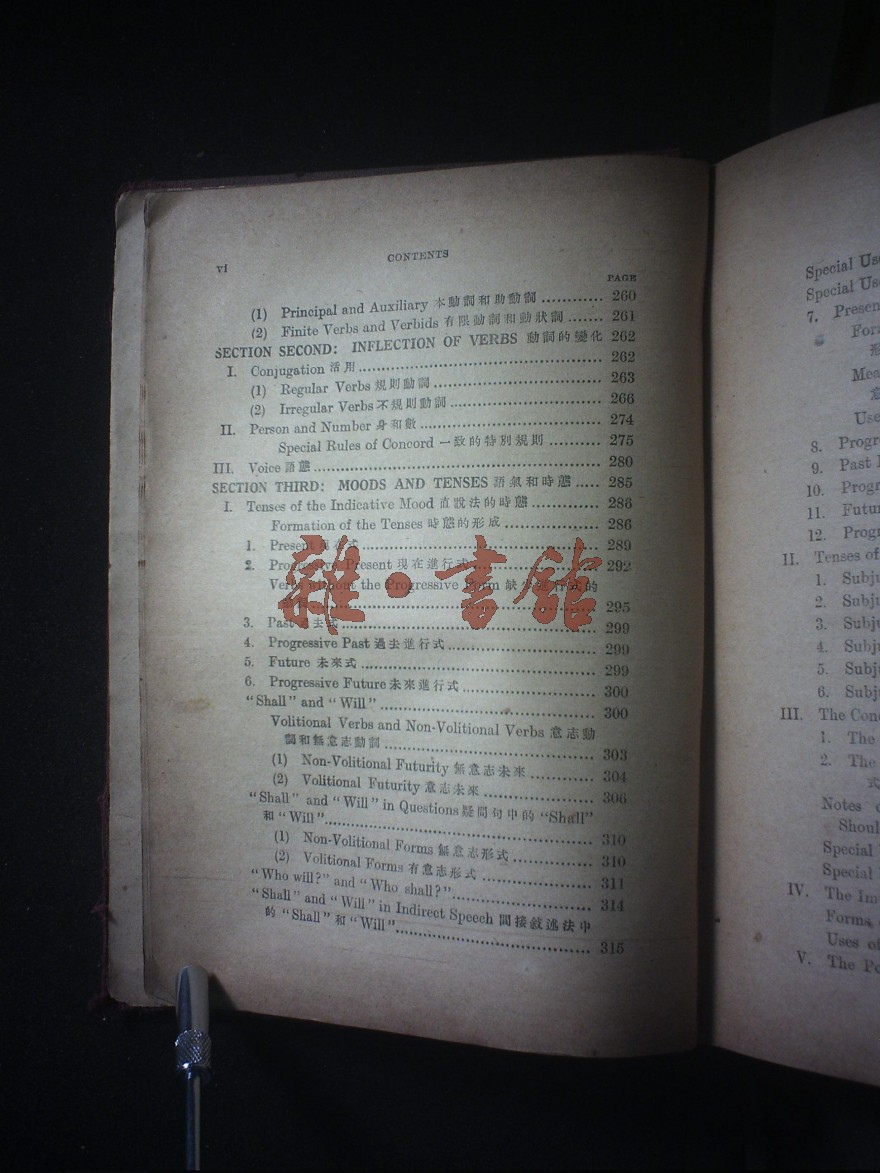 vi
CONTENTS
PAGE
(1) Principal and Auxiliary 本動詞和助動詞 ............ 260
(2) Finite Verbs and Verbids 有限動詞和動狀詞 ....... 261
SECTION SECOND: INFLECTION OF VERBS 動詞的變化 262
I. Conjugation 活用 ............ 262
(1) Regular Verbs 規則動詞 ............ 263
(2) Irregular Verbs 不規則動詞 ............ 266
II. Person and Number 身和數 ............ 274
Special Rules of Concord 一致的特別規則 .......... 275
III. Voice 語態 ............ 280
SECTION THIRD: MOODS AND TENSES 語氣和時態 ..... 285
I. Tenses of the Indicative Mood 直說法的時態 ............ 286
Formation of the Tenses 時態的形成 ............ 286
1. Present 現在式 ............ 289
2. Progressive Present 現在進行式 ............ 292
Verbs without the Progressive Form 缺少進行式的
............ 295
3. Past 過去式 ............ 299
4. Progressive Past 過去進行式 ............ 299
5. Future 未來式 ............ 299
6. Progressive Future 未來進行式 ............ 300
"Shall" and "Will" ............ 300
Volitional Verbs and Non-Volitional Verbs 意志動
詞和無意志動詞 ............ 303
(1) Non-Volitional Futurity 無意志未來 ............ 304
(2) Volitional Futurity 意志未來 ............ 306
"Shall" and "Will" in Questions 疑問句中的 "Shall"
和 "Will" ............ 310
(1) Non-Volitional Forms 無意志形式 ............ 310
(2) Volitional Forms 有意志形式 ............ 311
"Who will?" and "Who shall?" ............ 314
"Shall" and "Will" in Indirect Speech 間接敘述法中
的 "Shall" 和 "Will" ............ 315
雜·書館
Special
Special
7.
8.
9. Past
10.
11.
12.
II. Tenses of
1.
2.
3.
4.
5.
6.
III. The
1. The
2. The
式
Notes
Special
Special
IV. The
Forms
Uses of
V. The